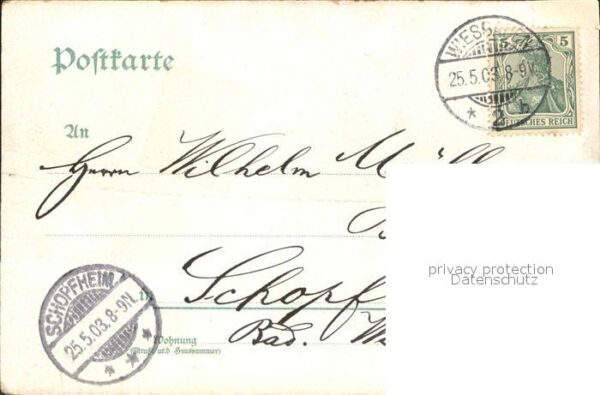 Postkarte
5
25.5.03.8-9N.
DEUTSCHES REICH
An
Herrn Wilhelm
privacy protection
Datenschutz
SCHOPFHEIM.
25.5.03.8-9N.
In
Schopf
Wohnung
(Straße und Hausnummer)
Bad.